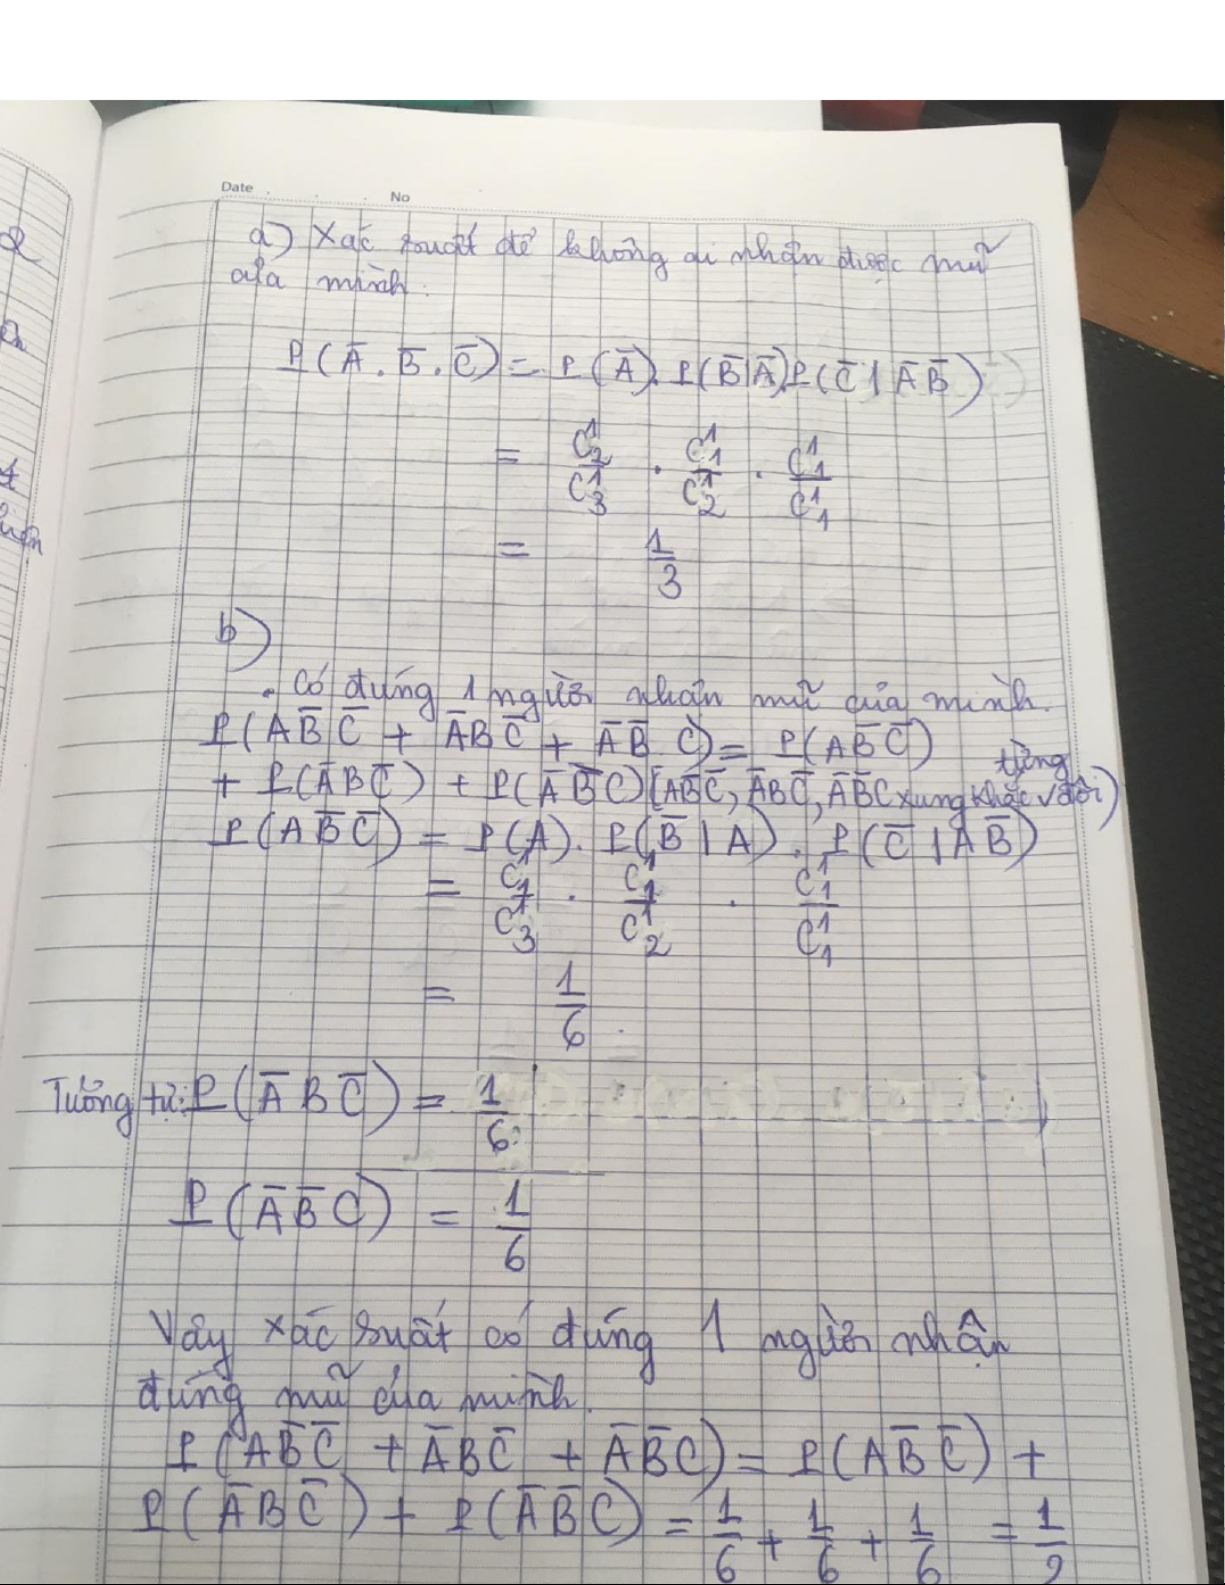 Date No
a) Xác suất để không ai nhận được mũ
của mình.
P(A̅.B̅.C̅) = P(A̅).P(B̅|A̅)P(C̅|A̅B̅)
= C¹₂/C¹₃ . C¹₁/C¹₂ . C¹₁/C¹₁
= 1/3
b)
. Có đúng 1 người nhận mũ của mình.
P(AB̅C̅ + A̅BC̅ + A̅B̅C) = P(AB̅C̅)
từng
+ P(A̅BC̅) + P(A̅B̅C) (AB̅C̅, A̅BC̅, A̅B̅C xung khắc với đôi)
P(AB̅C̅) = P(A).P(B̅|A).P(C̅|AB̅)
= C¹₁/C¹₃ . C¹₁/C¹₂ . C¹₁/C¹₁
= 1/6.
Tương tự: P(A̅BC̅) = 1/6
P(A̅B̅C) = 1/6
Vậy xác suất có đúng 1 người nhận
đúng mũ của mình.
P(AB̅C̅ + A̅BC̅ + A̅B̅C) = P(AB̅C̅) +
P(A̅BC̅) + P(A̅B̅C) = 1/6 + 1/6 + 1/6 = 1/2